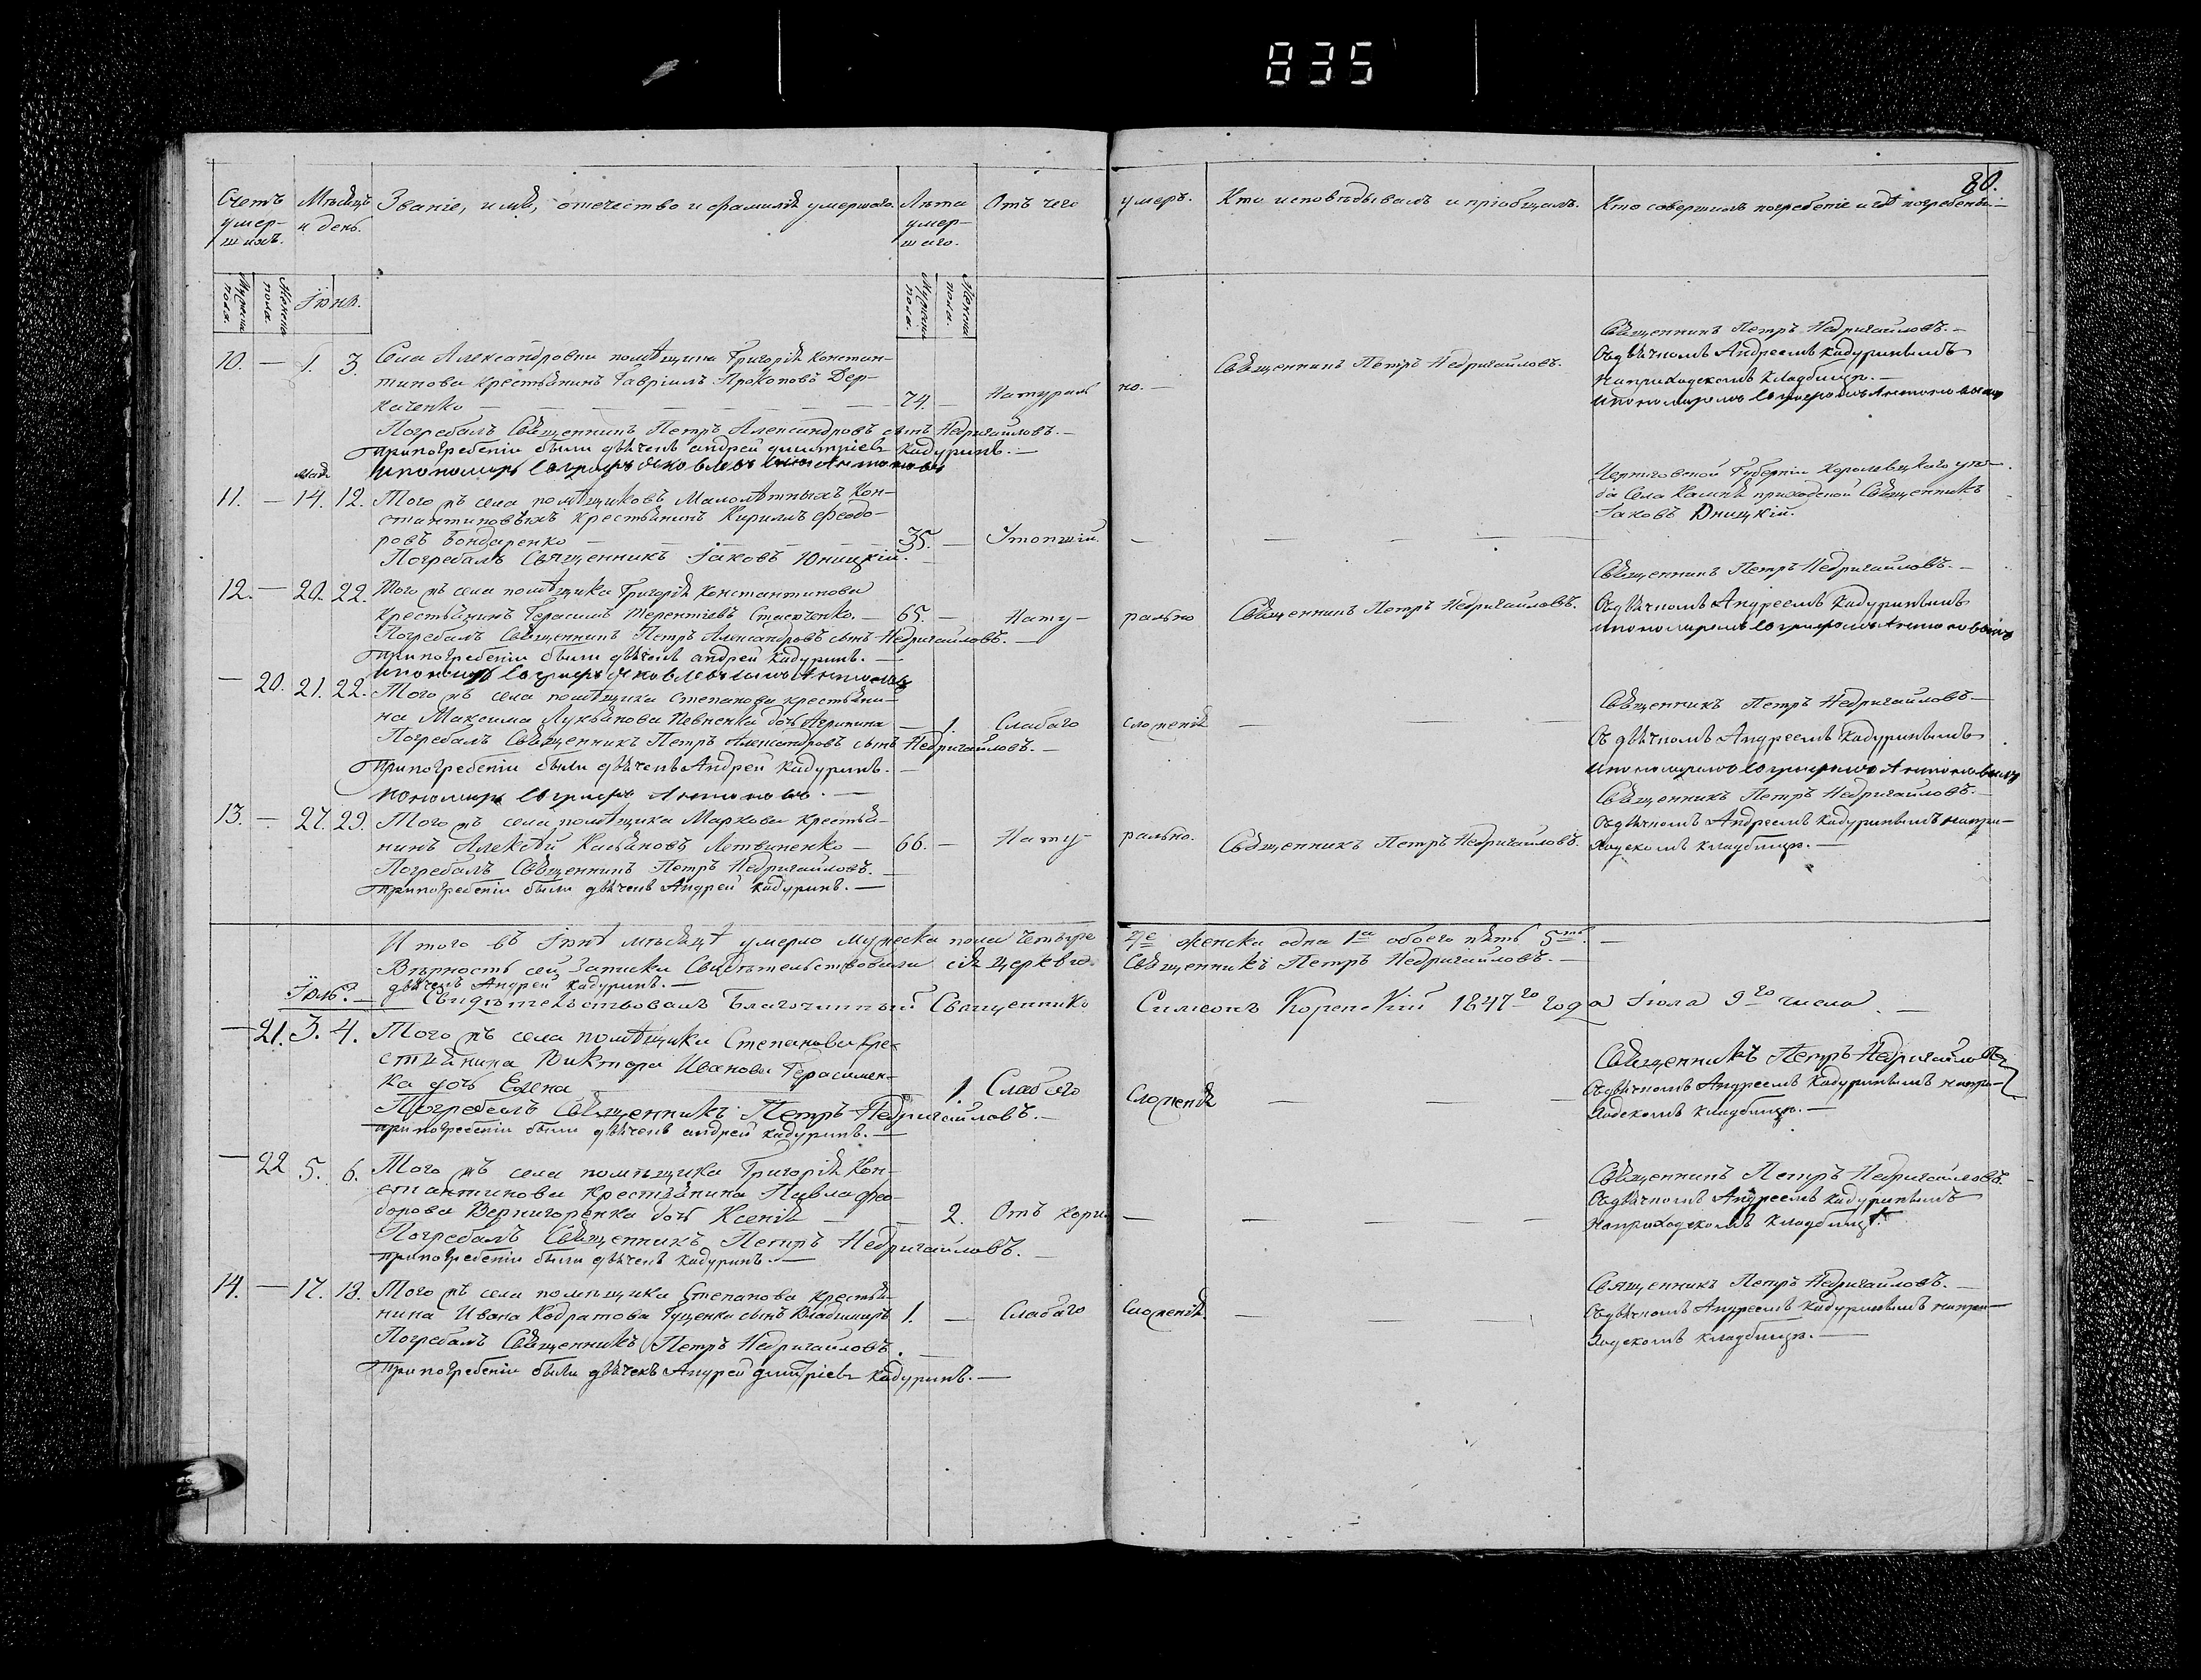 835
80.
Счетъ умер-шихъ.
Мѣсяцъ и день.
Званіе, имя, отечество и фамилія умершаго.
Лѣта умер-шаго.
Отъ чего умеръ.
Кто исповѣдывалъ и пріобщалъ.
Кто совершилъ погребеніе и гдѣ погребенъ.
Мужеска пола.
Женска пола.
Іюня.
Мужеска пола.
Женска пола.
10. — 1. 3. Села Александровки помѣщика Григорія Констан-
тинова крестьянинъ Гавріилъ Прокоповъ Дер-
каченко — 74. — Натураль но. —
Священникъ Петръ Недригайловъ.
Погребалъ Священникъ Петръ Александровъ сынъ Недригайловъ. —
При погребеніи были дьячекъ андрей димитріевъ Кадуринъ. —
и пономарь
Священникъ Петръ Недригайловъ. —
Съ дьячкомъ Андреемъ Кадуринымъ
на приходскомъ кладбищѣ. —
и пономаремъ
мая
11. — 14. 12. Того жъ села помѣщиковъ Малолѣтныхъ Кон-
стантиновыхъ крестьянинъ Кирилъ Феодо-
ровъ Бондаренко — 35. — Утопшій. —
Погребалъ Священникъ Іаковъ Юницкій.
Черниговской Губерніи Королевецкаго уѣз-
да Села приходской Священникъ
Іаковъ Юницкій.
12. — 20. 22. Того жъ села помѣщика Григорія Константинова
крестьянинъ Герасимъ Терентіевъ — 65. — Нату- рально
Священникъ Петръ Недригайловъ.
Погребалъ Священникъ Петръ Александровъ сынъ Недригайловъ. —
При погребеніи были дьячекъ андрей Кадуринъ. —
Священникъ Петръ Недригайловъ. —
Съ дьячкомъ Андреемъ Кадуринымъ
и пономаремъ
— 20. 21. 22. Того жъ села помѣщика Степанова крестьяни-
на Максима Лукьянова дочь — 1. Слабаго сложенія —
Погребалъ Священникъ Петръ Александровъ сынъ Недригайловъ. —
При погребеніи были дьячекъ Андрей Кадуринъ. —
пономарь
Священникъ Петръ Недригайловъ —
Съ дьячкомъ Андреемъ Кадуринымъ
и пономаремъ
13. — 27. 29. Того жъ села помѣщика Маркова крестья-
нинъ Алексѣй Касьяновъ Летвиненко — 66. — Нату- рально.
Священникъ Петръ Недригайловъ.
Погребалъ Священникъ Петръ Недригайловъ. —
При погребеніи были дьячекъ Андрей Кадуринъ. —
Священникъ Петръ Недригайловъ. —
Съ дьячкомъ Андреемъ Кадуринымъ на при-
ходскомъ кладбищѣ. —
Итого въ Іюнѣ мѣсяцѣ умерло мужеска пола четыре 4е женска одна 1а обоего пять 5ть. —
Вѣрность сей Записки Свидѣтельствовали сія церкви Священникъ Петръ Недригайловъ. —
дьячекъ Андрей Кадуринъ. —
Свидѣтельствовалъ Благочинный Священникъ Симеонъ 1847го года Іюля 9го числа. —
Іюль. —
— 21. 3. 4. Того жъ села помѣщика Степанова кре-
стьянина Виктора Иванова Герасимен-
ка дочь Елена — 1. Слабаго Сложенія —
Погребалъ Священникъ Петръ Недригайловъ. —
При погребеніи были дьячекъ андрей Кадуринъ. —
Священникъ Петръ Недригайловъ
Съ дьячкомъ Андреемъ Кадуринымъ на при-
ходскомъ кладбищѣ. —
— 22 5. 6. Того жъ села помѣщика Григорія Кон-
стантинова крестьянина Павла Фео-
дорова Вернигоренка дочь Ксенія — 2. Отъ кори —
Погребалъ Священникъ Петръ Недригайловъ. —
При погребеніи были дьячекъ Кадуринъ. —
Священникъ Петръ Недригайловъ.
Съ дьячкомъ Андреемъ Кадуринымъ
на приходскомъ кладбищѣ.
14. — 17. 18. Того жъ села помѣщика Степанова крестья-
нина Ивана Кодратова сынъ Владимиръ 1. — Слабаго Сложенія. —
Погребалъ Священникъ Петръ Недригайловъ. —
При погребеніи были дьячекъ Андрей димитріевъ Кадуринъ. —
Священникъ Петръ Недригайловъ. —
Съ дьячкомъ Андреемъ Кадуринымъ на при-
ходскомъ кладбищѣ. —